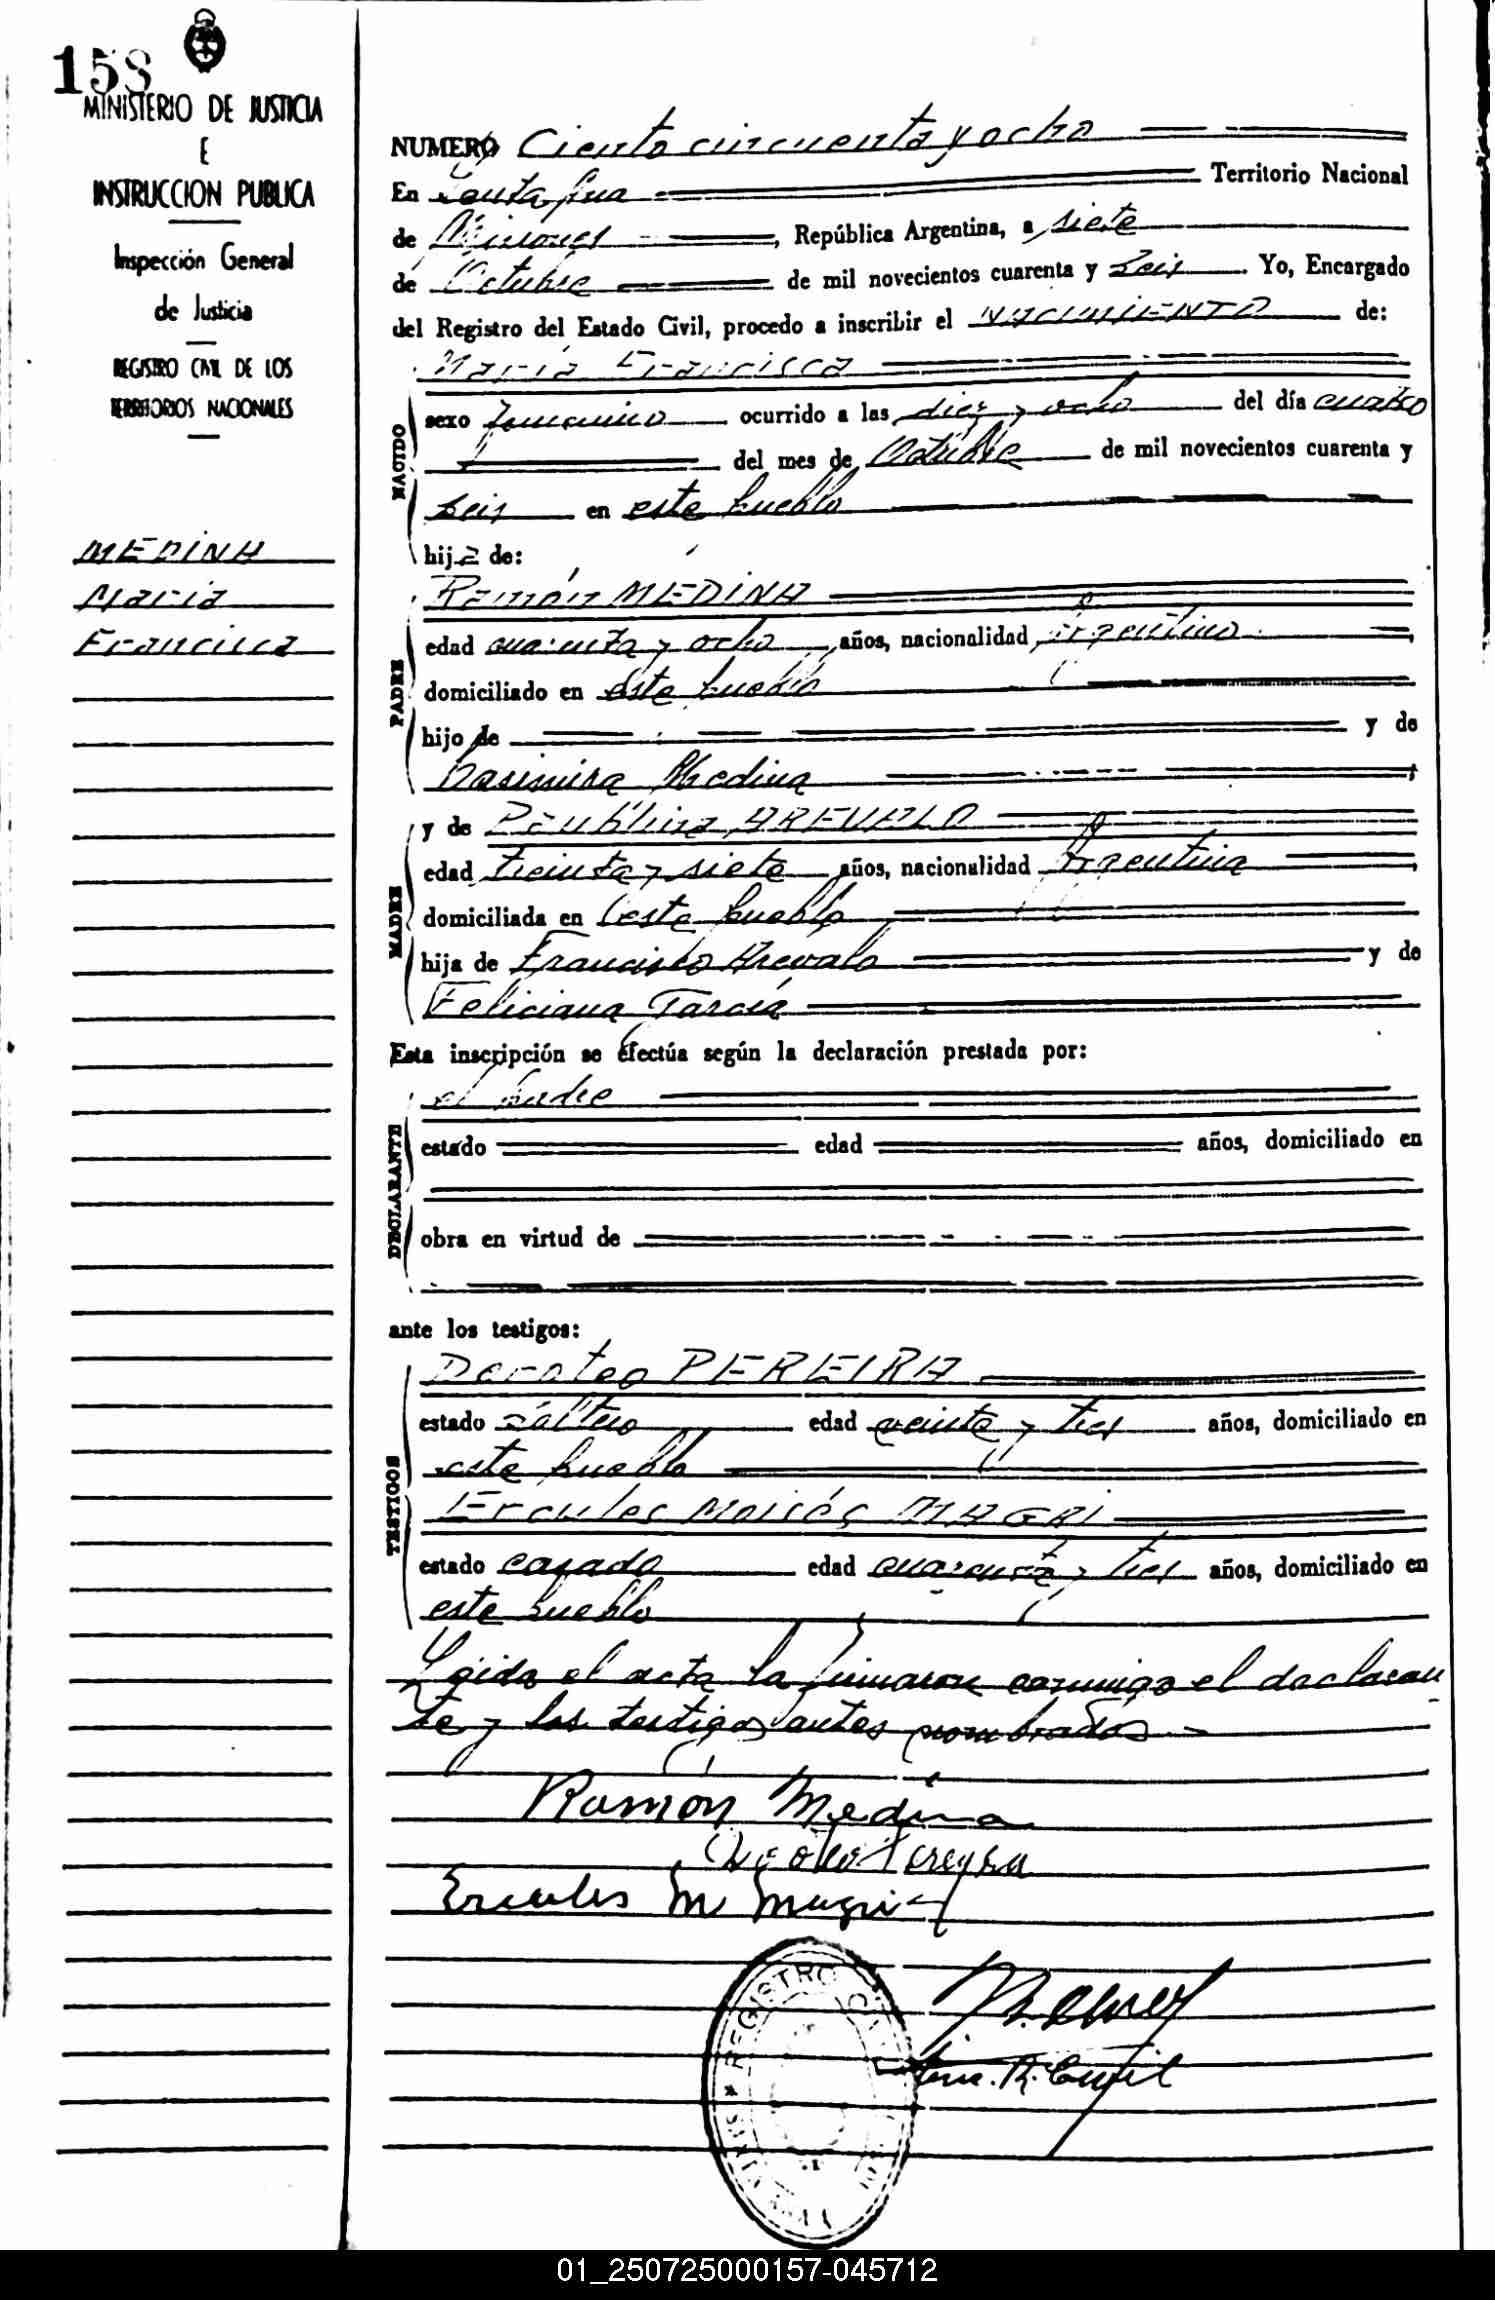 158
MINISTERIO DE JUSTICIA
E
INSTRUCCION PUBLICA
Inspección General
de Justicia
REGISTRO CIVIL DE LOS
TERRITORIOS NACIONALES
MEDINA
María
Francisca
NUMERO Ciento cincuenta y ocho
En Santa Ana Territorio Nacional
de Misiones, República Argentina, a siete
de Octubre de mil novecientos cuarenta y seis Yo, Encargado
del Registro del Estado Civil, procedo a inscribir el NACIMIENTO de:
María Francisca
NACIDO
sexo femenino ocurrido a las diez y ocho del día cuatro
del mes de Octubre de mil novecientos cuarenta y
seis en este pueblo
hija de:
PADRE
Ramón MEDINA
edad cuarenta y ocho años, nacionalidad Argentino
domiciliado en este pueblo
hijo de y de
Casimira Medina
MADRE
y de Paublina AREVALO
edad treinta y siete años, nacionalidad Argentina
domiciliada en este pueblo
hija de Francisco Arevalo y de
Feliciana García
Esta inscripción se efectúa según la declaración prestada por:
DECLARANTE
el padre
estado edad años, domiciliado en
obra en virtud de
ante los testigos:
TESTIGOS
Doroteo PEREIRA
estado soltero edad veinte y tres años, domiciliado en
este pueblo
Ercules Moisés MAGRI
estado casado edad cuarenta y tres años, domiciliado en
este pueblo
Leida el acta la firmaron conmigo el declaran
te y los testigos antes nombrados -
Ramón Medina
Pereyra
Ercules M Magri
REGISTRO CIVIL
01_250725000157-045712